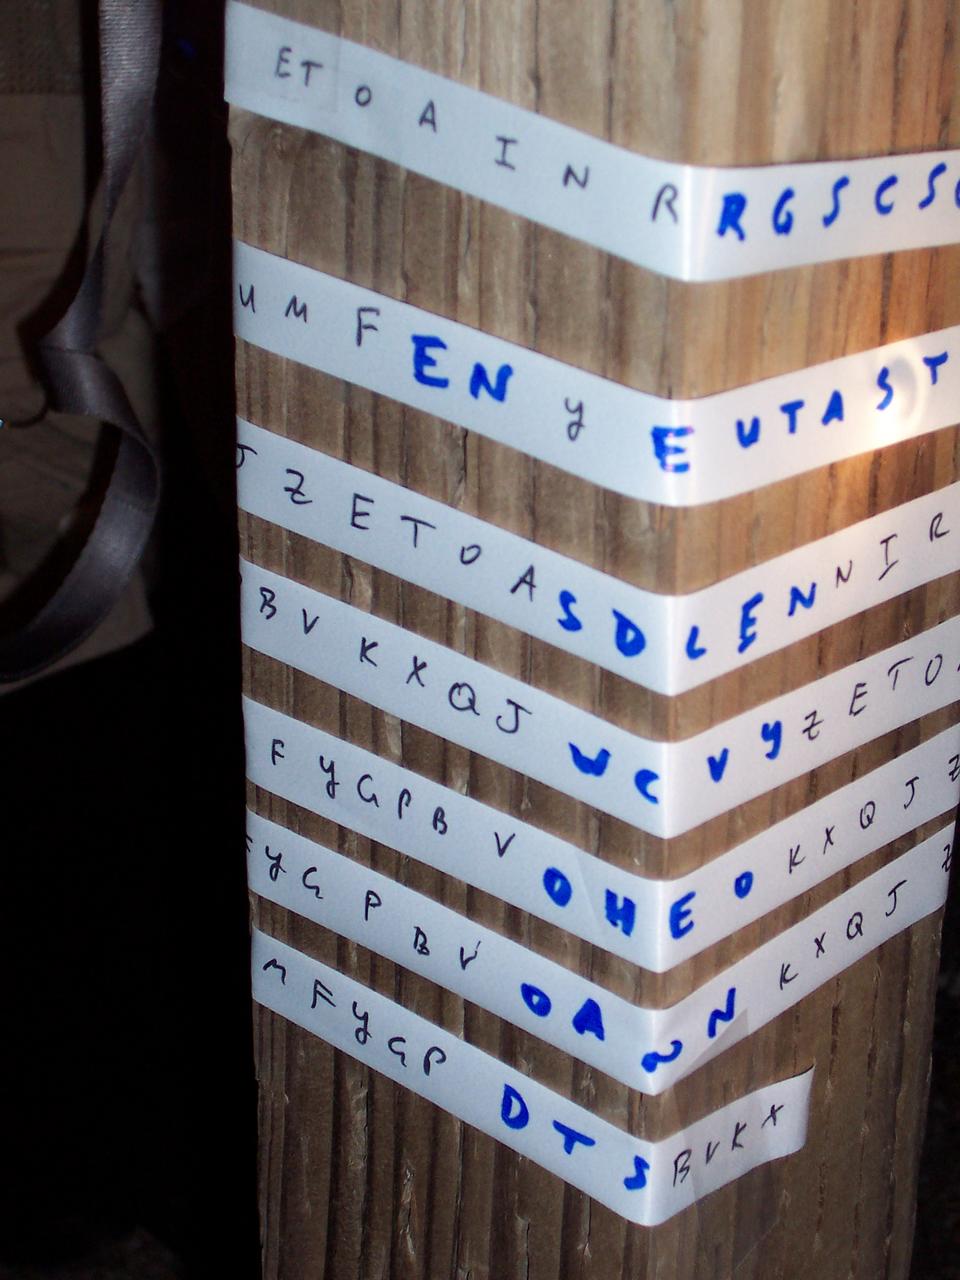 E T O A I N R R G S C S
U M F E N Y E U T A S T
J Z E T O A S D L E N N I R
B V K X Q J W C V Y Z E T O
F Y G P B V O H E O K X Q J Z
F Y G P B V O A N N K X Q J Z
M F Y G P D T S B V K X